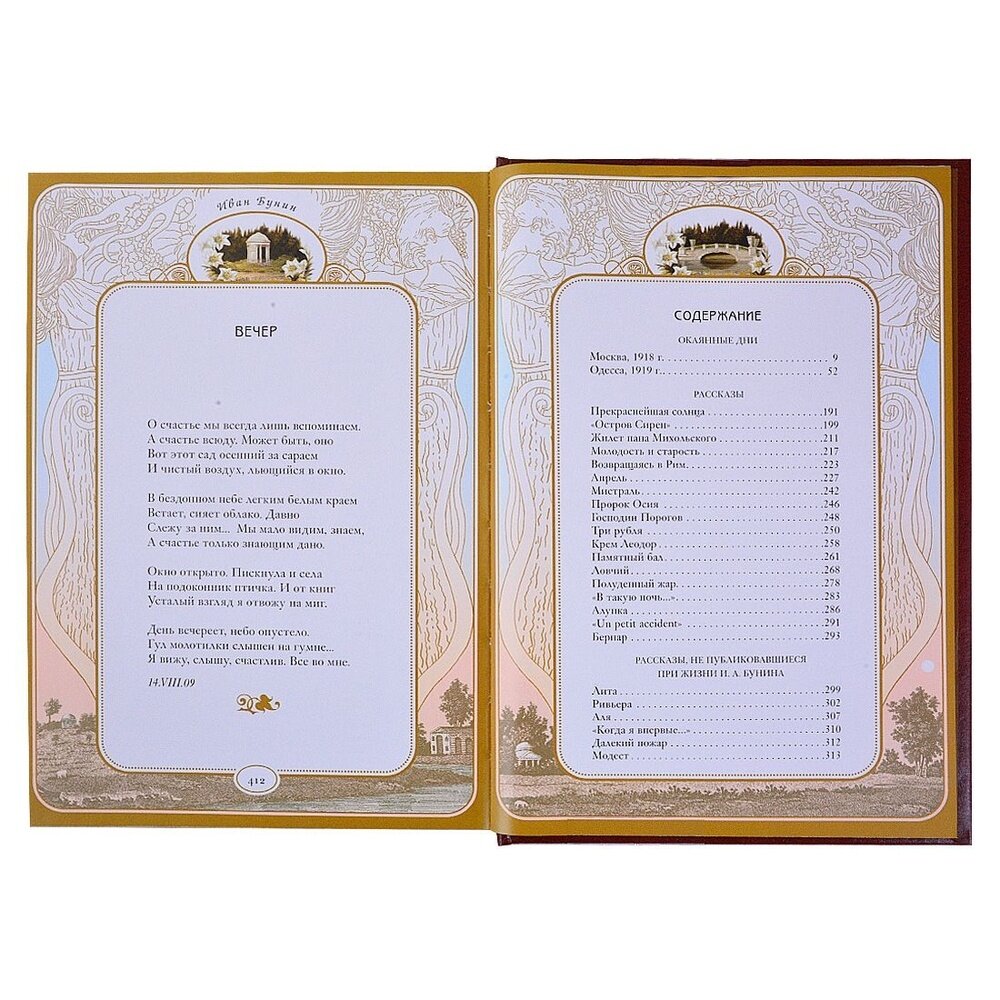 Иван Бунин
ВЕЧЕР
О счастье мы всегда лишь вспоминаем.
А счастье всюду. Может быть, оно
Вот этот сад осенний за сараем
И чистый воздух, льющийся в окно.
В бездонном небе легким белым краем
Встает, сияет облако. Давно
Слежу за ним... Мы мало видим, знаем,
А счастье только знающим дано.
Окно открыто. Пискнула и села
На подоконник птичка. И от книг
Усталый взгляд я отвожу на миг.
День вечереет, небо опустело.
Гул молотилки слышен на гумне...
Я вижу, слышу, счастлив. Все во мне.
14.VIII.09
412
СОДЕРЖАНИЕ
ОКАЯННЫЕ ДНИ
Москва, 1918 г. 9
Одесса, 1919 г. 52
РАССКАЗЫ
Прекраснейшая солнца 191
«Остров Сирен» 199
Жилет пана Михольского 211
Молодость и старость 217
Возвращаясь в Рим 223
Апрель 227
Мистраль 242
Пророк Осия 246
Господин Порогов 248
Три рубля 250
Крем Леодор 258
Памятный бал 261
Ловчий 268
Полуденный жар 278
«В такую ночь...» 283
Алупка 286
«Un petit accident» 291
Бернар 293
РАССКАЗЫ, НЕ ПУБЛИКОВАВШИЕСЯ
ПРИ ЖИЗНИ И. А. БУНИНА
Лита 299
Ривьера 302
Аля 307
«Когда я впервые...» 310
Далекий пожар 312
Модест 313